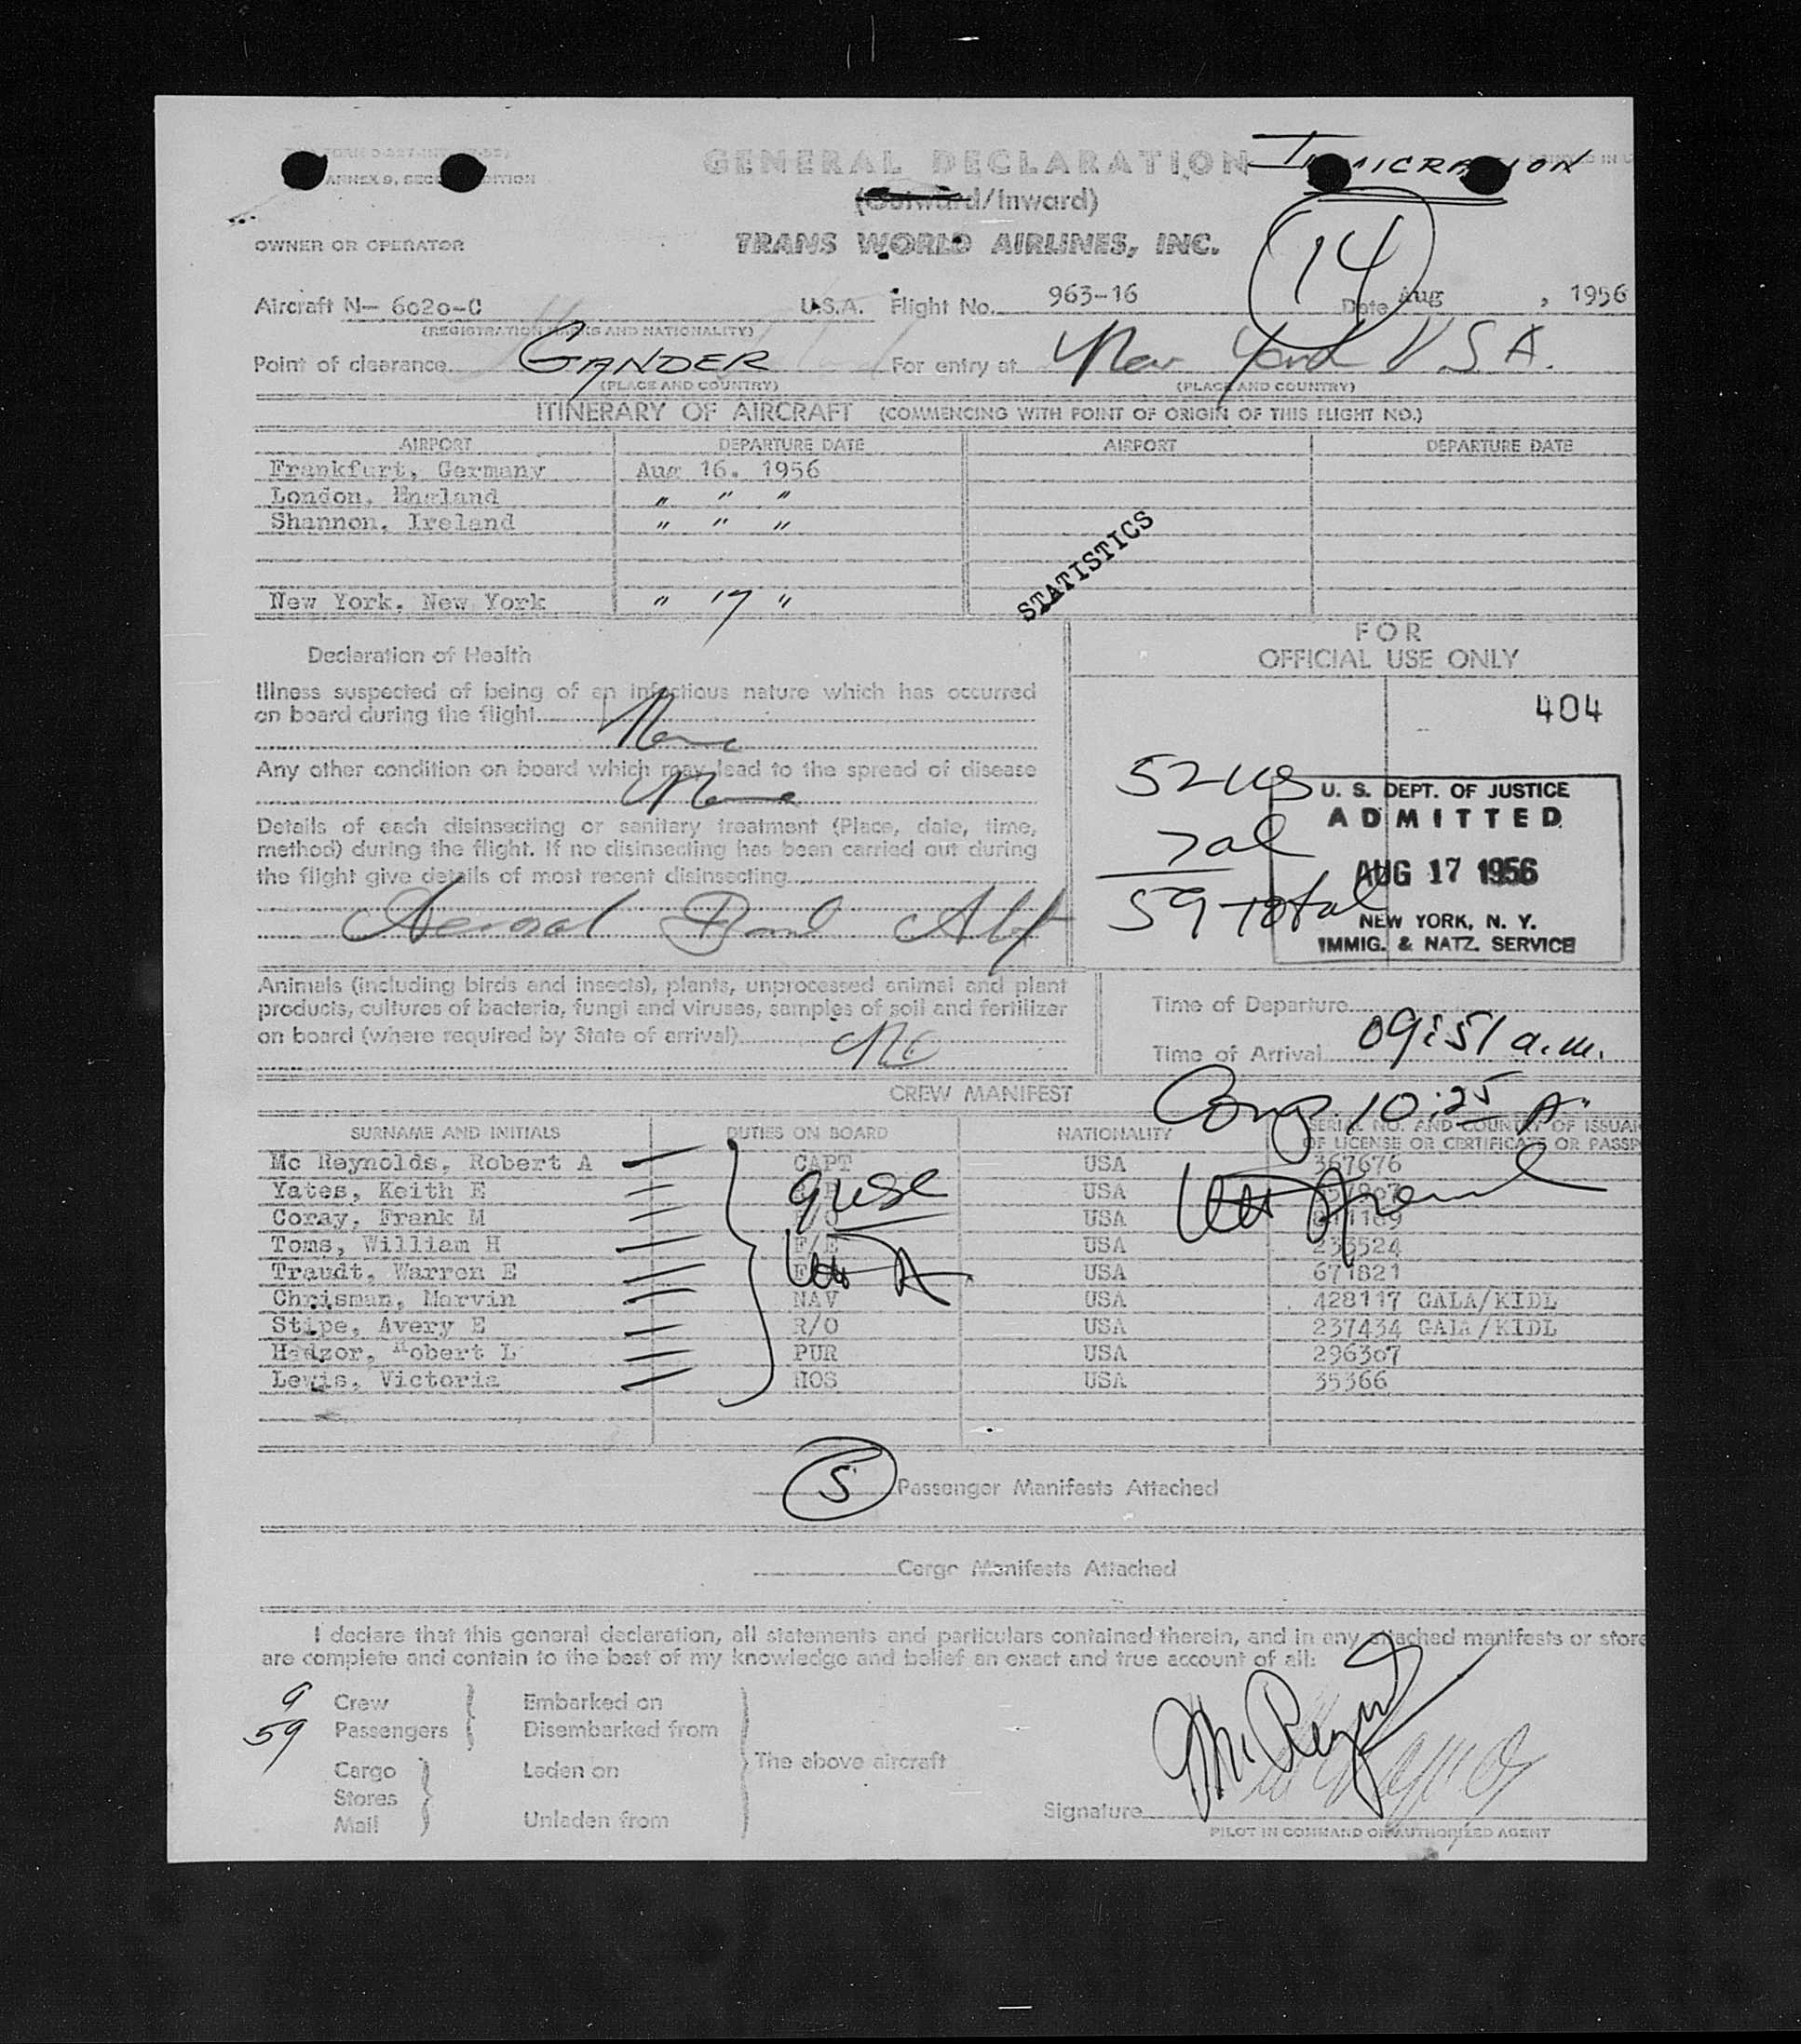 ANNEX 9, SECOND EDITION
GENERAL DECLARATION
IMMIGRATION
(Outward/Inward)
OWNER OR OPERATOR
TRANS WORLD AIRLINES, INC.
14
Aircraft N- 6020-C U.S.A. Flight No. 963-16 Date Aug , 1956
(REGISTRATION MARKS AND NATIONALITY)
Point of clearance GANDER For entry at New York USA.
(PLACE AND COUNTRY) (PLACE AND COUNTRY)
ITINERARY OF AIRCRAFT (COMMENCING WITH POINT OF ORIGIN OF THIS FLIGHT NO.)
AIRPORT DEPARTURE DATE AIRPORT DEPARTURE DATE
Frankfurt, Germany Aug 16. 1956
London, England " " "
Shannon, Ireland " " "
STATISTICS
New York, New York " 17 "
FOR
OFFICIAL USE ONLY
Declaration of Health
Illness suspected of being of an infectious nature which has occurred
on board during the flight
None
404
Any other condition on board which may lead to the spread of disease
None
Details of each disinsecting or sanitary treatment (Place, date, time,
method) during the flight. If no disinsecting has been carried out during
the flight give details of most recent disinsecting
Aerosol Bomb
52 us
7 al
59 total
U. S. DEPT. OF JUSTICE
ADMITTED
AUG 17 1956
NEW YORK, N. Y.
IMMIG. & NATZ. SERVICE
Animals (including birds and insects), plants, unprocessed animal and plant
products, cultures of bacteria, fungi and viruses, samples of soil and fertilizer
on board (where required by State of arrival) NO
Time of Departure
Time of Arrival 09:51 a.m.
Comp. 10:25 A"
CREW MANIFEST
SURNAME AND INITIALS DUTIES ON BOARD NATIONALITY SERIAL NO. AND COUNTRY OF ISSUAN
OF LICENSE OR CERTIFICATE OR PASSP
Mc Reynolds, Robert A CAPT USA 367676
Yates, Keith E USA
Coray, Frank M F/O USA
9 USC
Toms, William H F/E USA 233524
Traudt, Warren E USA 671821
Chrisman, Marvin NAV USA 428117 GALA/KIDL
Stipe, Avery E R/O USA 237434 GALA/KIDL
Hadzor, Robert L PUR USA 296307
Lewis, Victoria HOS USA 35366
5 Passenger Manifests Attached
Cargo Manifests Attached
I declare that this general declaration, all statements and particulars contained therein, and in any attached manifests or store
are complete and contain to the best of my knowledge and belief an exact and true account of all:
9 Crew Embarked on
59 Passengers Disembarked from
The above aircraft
Cargo Laden on
Stores
Mail Unladen from
Signature McReynolds
PILOT IN COMMAND OR AUTHORIZED AGENT